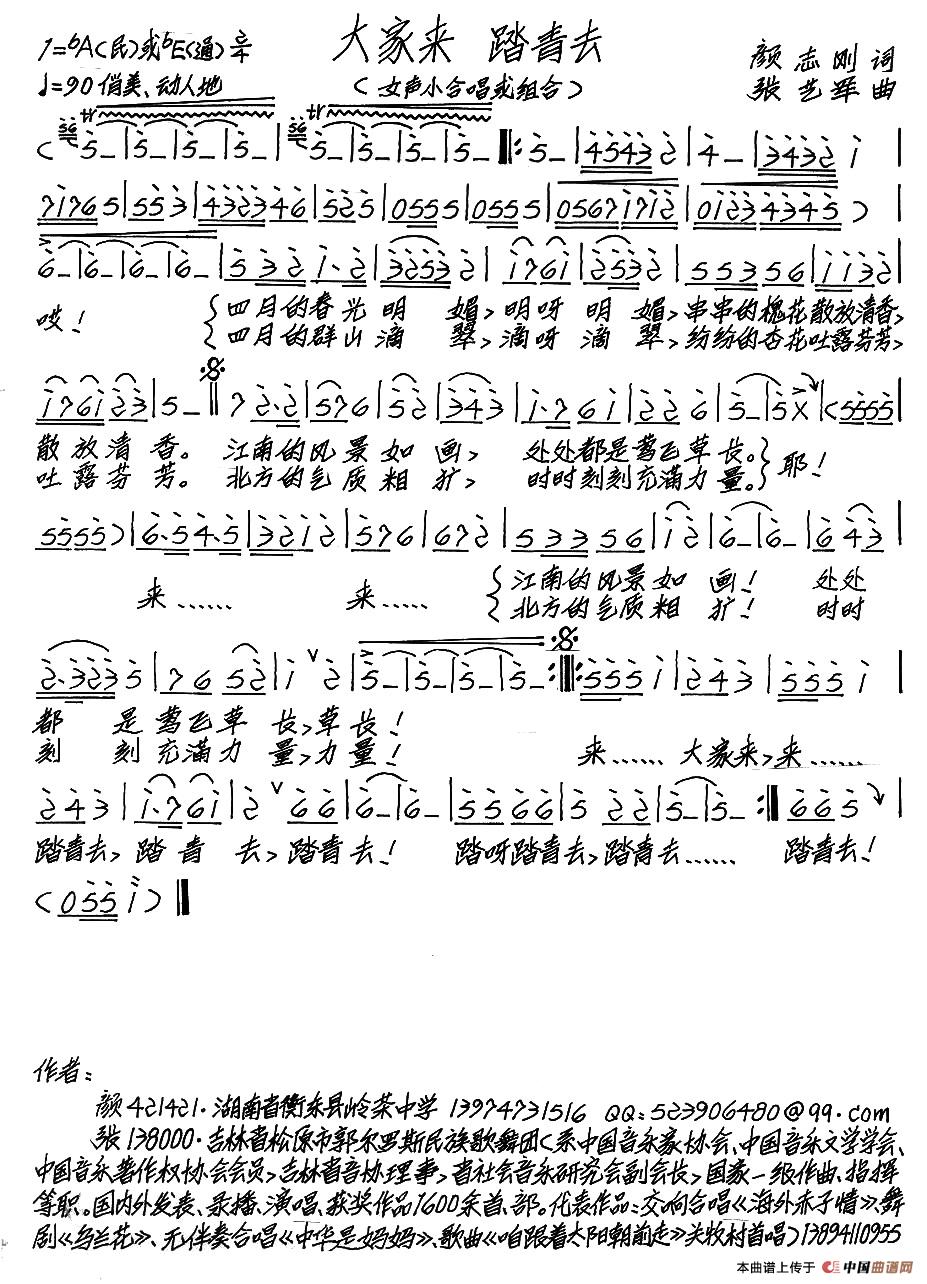 大家来 踏青去
1=♭A(民)或♭E(通) 2/4
♩=90 俏美、动人地
(女声小合唱或组合)
颜志刚 词
张艺军 曲
哎!
四月的春光明 媚,明呀 明 媚,串串的槐花散放清香,
四月的群山滴 翠,滴呀 滴 翠,纷纷的杏花吐露芬芳,
散 放 清 香。 江南的风景如 画, 处处都是莺飞草长。
吐 露 芬 芳。 北方的气质粗 扩, 时时刻刻充满力量。
耶!
来…… 来……
江南的风景如 画! 处处
北方的气质粗 扩! 时时
都 是莺飞草 长,草长!
刻 刻充满力 量,力量!
来…… 大家来,来……
踏青去,踏青 去,踏青去! 踏呀踏青去,踏青去…… 踏青去!
作者:
颜421421·湖南省衡东县岭茶中学 13974731516 QQ:523906480@qq.com
张138000·吉林省松原市郭尔罗斯民族歌舞团(系中国音乐家协会、中国音乐文学学会、
中国音乐著作权协会会员,吉林省音协理事,省社会音乐研究会副会长,国家一级作曲、指挥
等职。国内外发表、录播、演唱、获奖作品1600余首、部。代表作品:交响合唱《海外赤子情》、舞
剧《乌兰花》、无伴奏合唱《中华是妈妈》、歌曲《咱跟着太阳朝前走》关牧村首唱)13894110955
本曲谱上传于 中国曲谱网